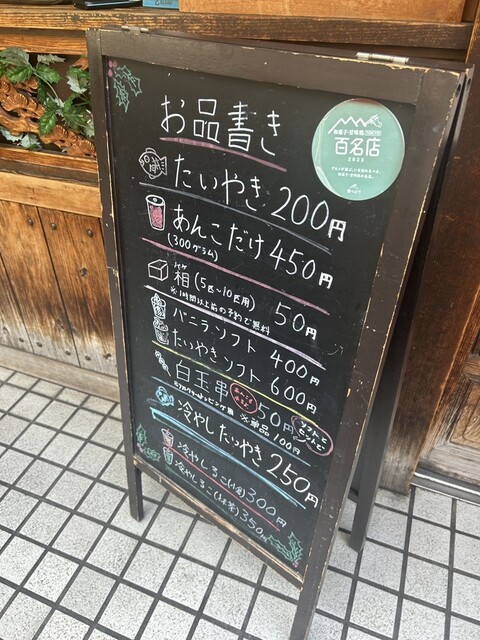 お品書き
和菓子・甘味処 TOKYO
百名店
2023
食べログ
たいやき 200円
あんこだけ 450円
(300グラム)
ハコ
箱 (5匹〜10匹用) 50円
※1時間以上前の予約で無料
バニラソフト 400円
たいやきソフト 600円
白玉串 50円
ソフトとセットで
※単品100円
冷やしたいやき 250円
冷やしるこ 300円
冷やしるこ(抹茶) 350円